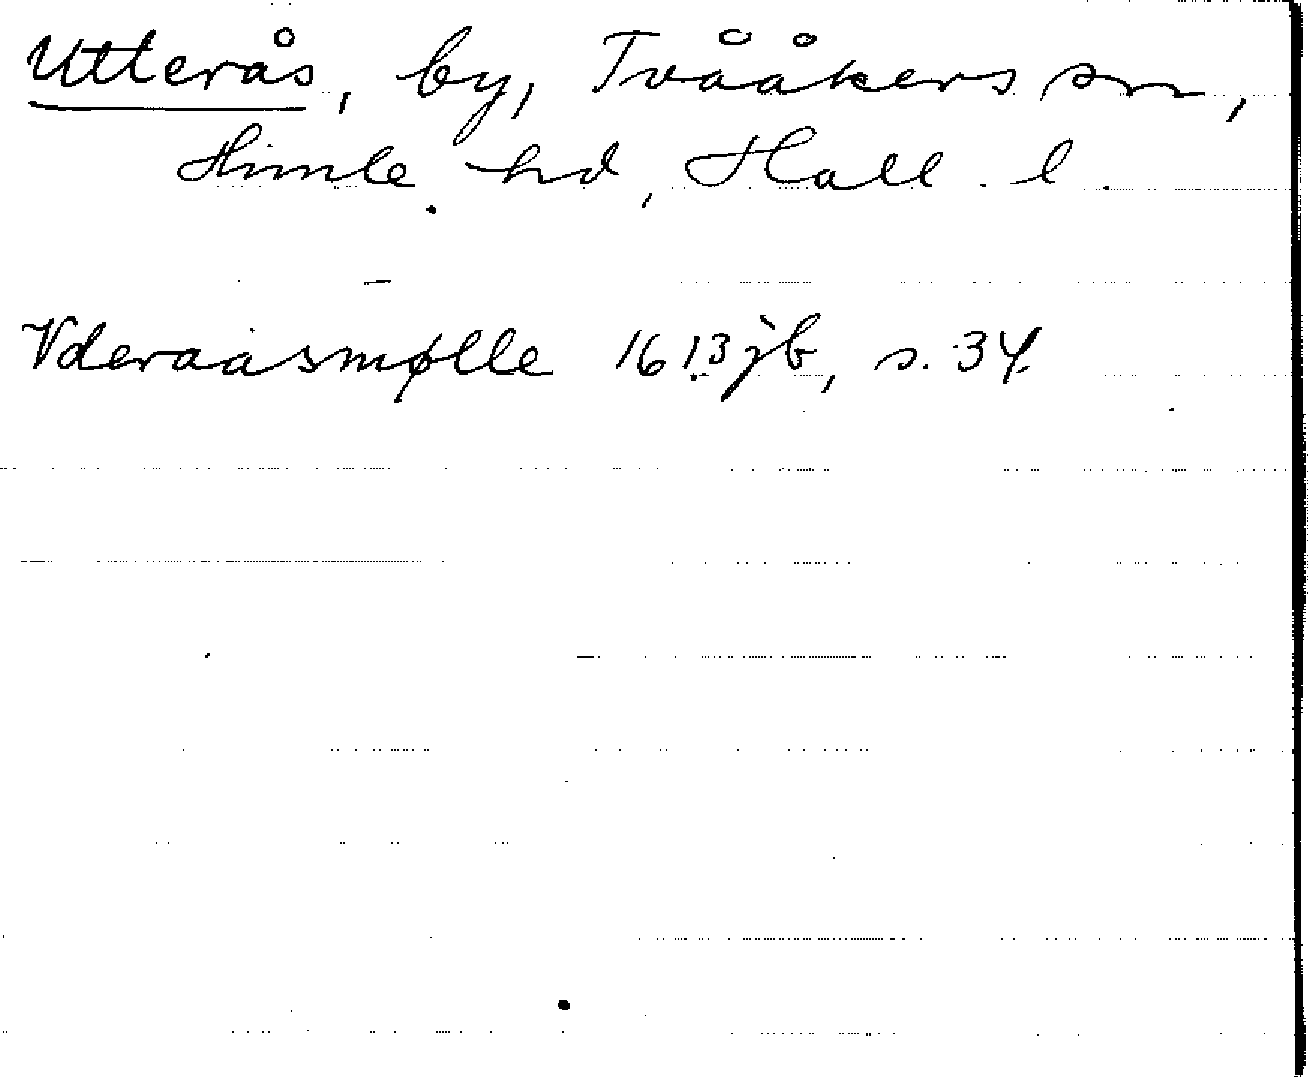 Utterås, by, Tvååkers sn,
Himle hd, Hall. l.
Vderaasmølle 1613 jb, s. 34.